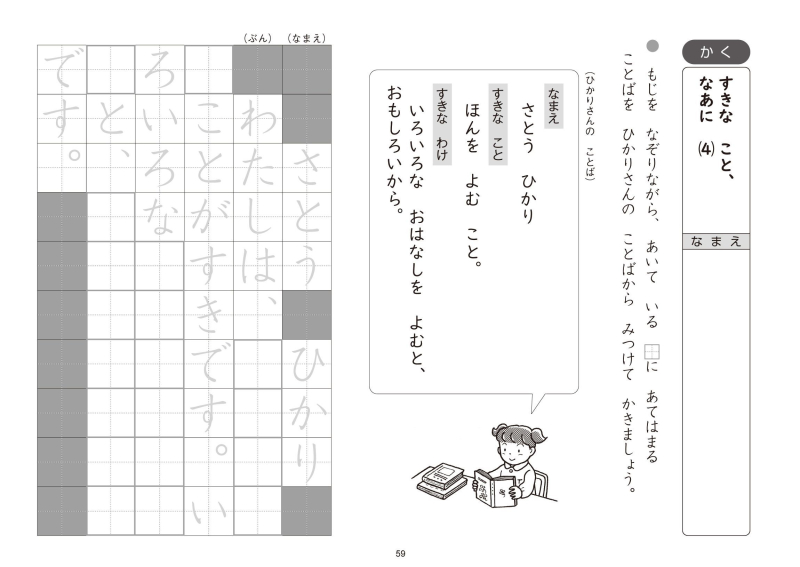 かく
すきな こと、
なあに ⑷
なまえ
もじを なぞりながら、 あいて いる に あてはまる
ことばを ひかりさんの ことばから みつけて かきましょう。
(ひかりさんの ことば)
なまえ
さとう ひかり
すきな こと
ほんを よむ こと。
すきな わけ
いろいろな おはなしを よむと、
おもしろいから。
(なまえ)
さとう ひかり
(ぶん)
わたしは、
ことがすきです。い
ろいろな
と、
です。
59